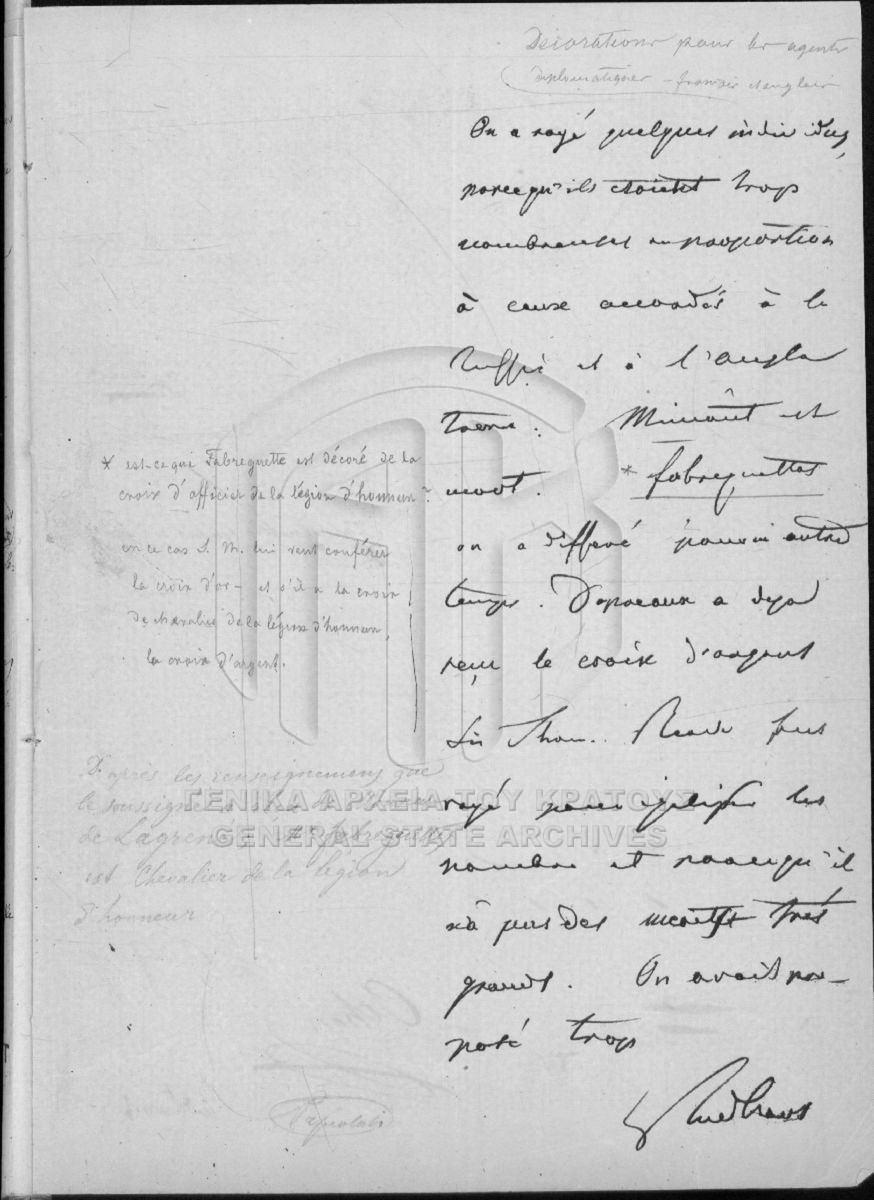 Décorations pour les agents
diplomatiques – français et anglais
On a rayé quelques individus,
parcequ'ils etoient trop
nombreuses en proportion
à ceux accordés à la
Russie et à l'Angle
terre. Mimaut est
mort. * Fabreguettes
on a differé pour un autre
temps. a deja
reçu le croix d'argent
Sir Thom. Reade fut
rayé pour les
nombre et parcequ'il
n'a pas des merites très
grands. On avoit pro–
posé trop
* est-ce que Fabreguette est décoré de la
croix d'officier de la légion d'honneur?
en ce cas S. M. lui veut conférer
la croix d'or – et s'il a la croix
de chevalier de la légion d'honneur,
la croix d'argent.
D'après les renseignemens que
le soussigné a
de Lagrené, Mr Fabreguettes
est Chevalier de la légion
d'honneur
ΓΕΝΙΚΑ ΑΡΧΕΙΑ ΤΟΥ ΚΡΑΤΟΥΣ
GENERAL STATE ARCHIVES